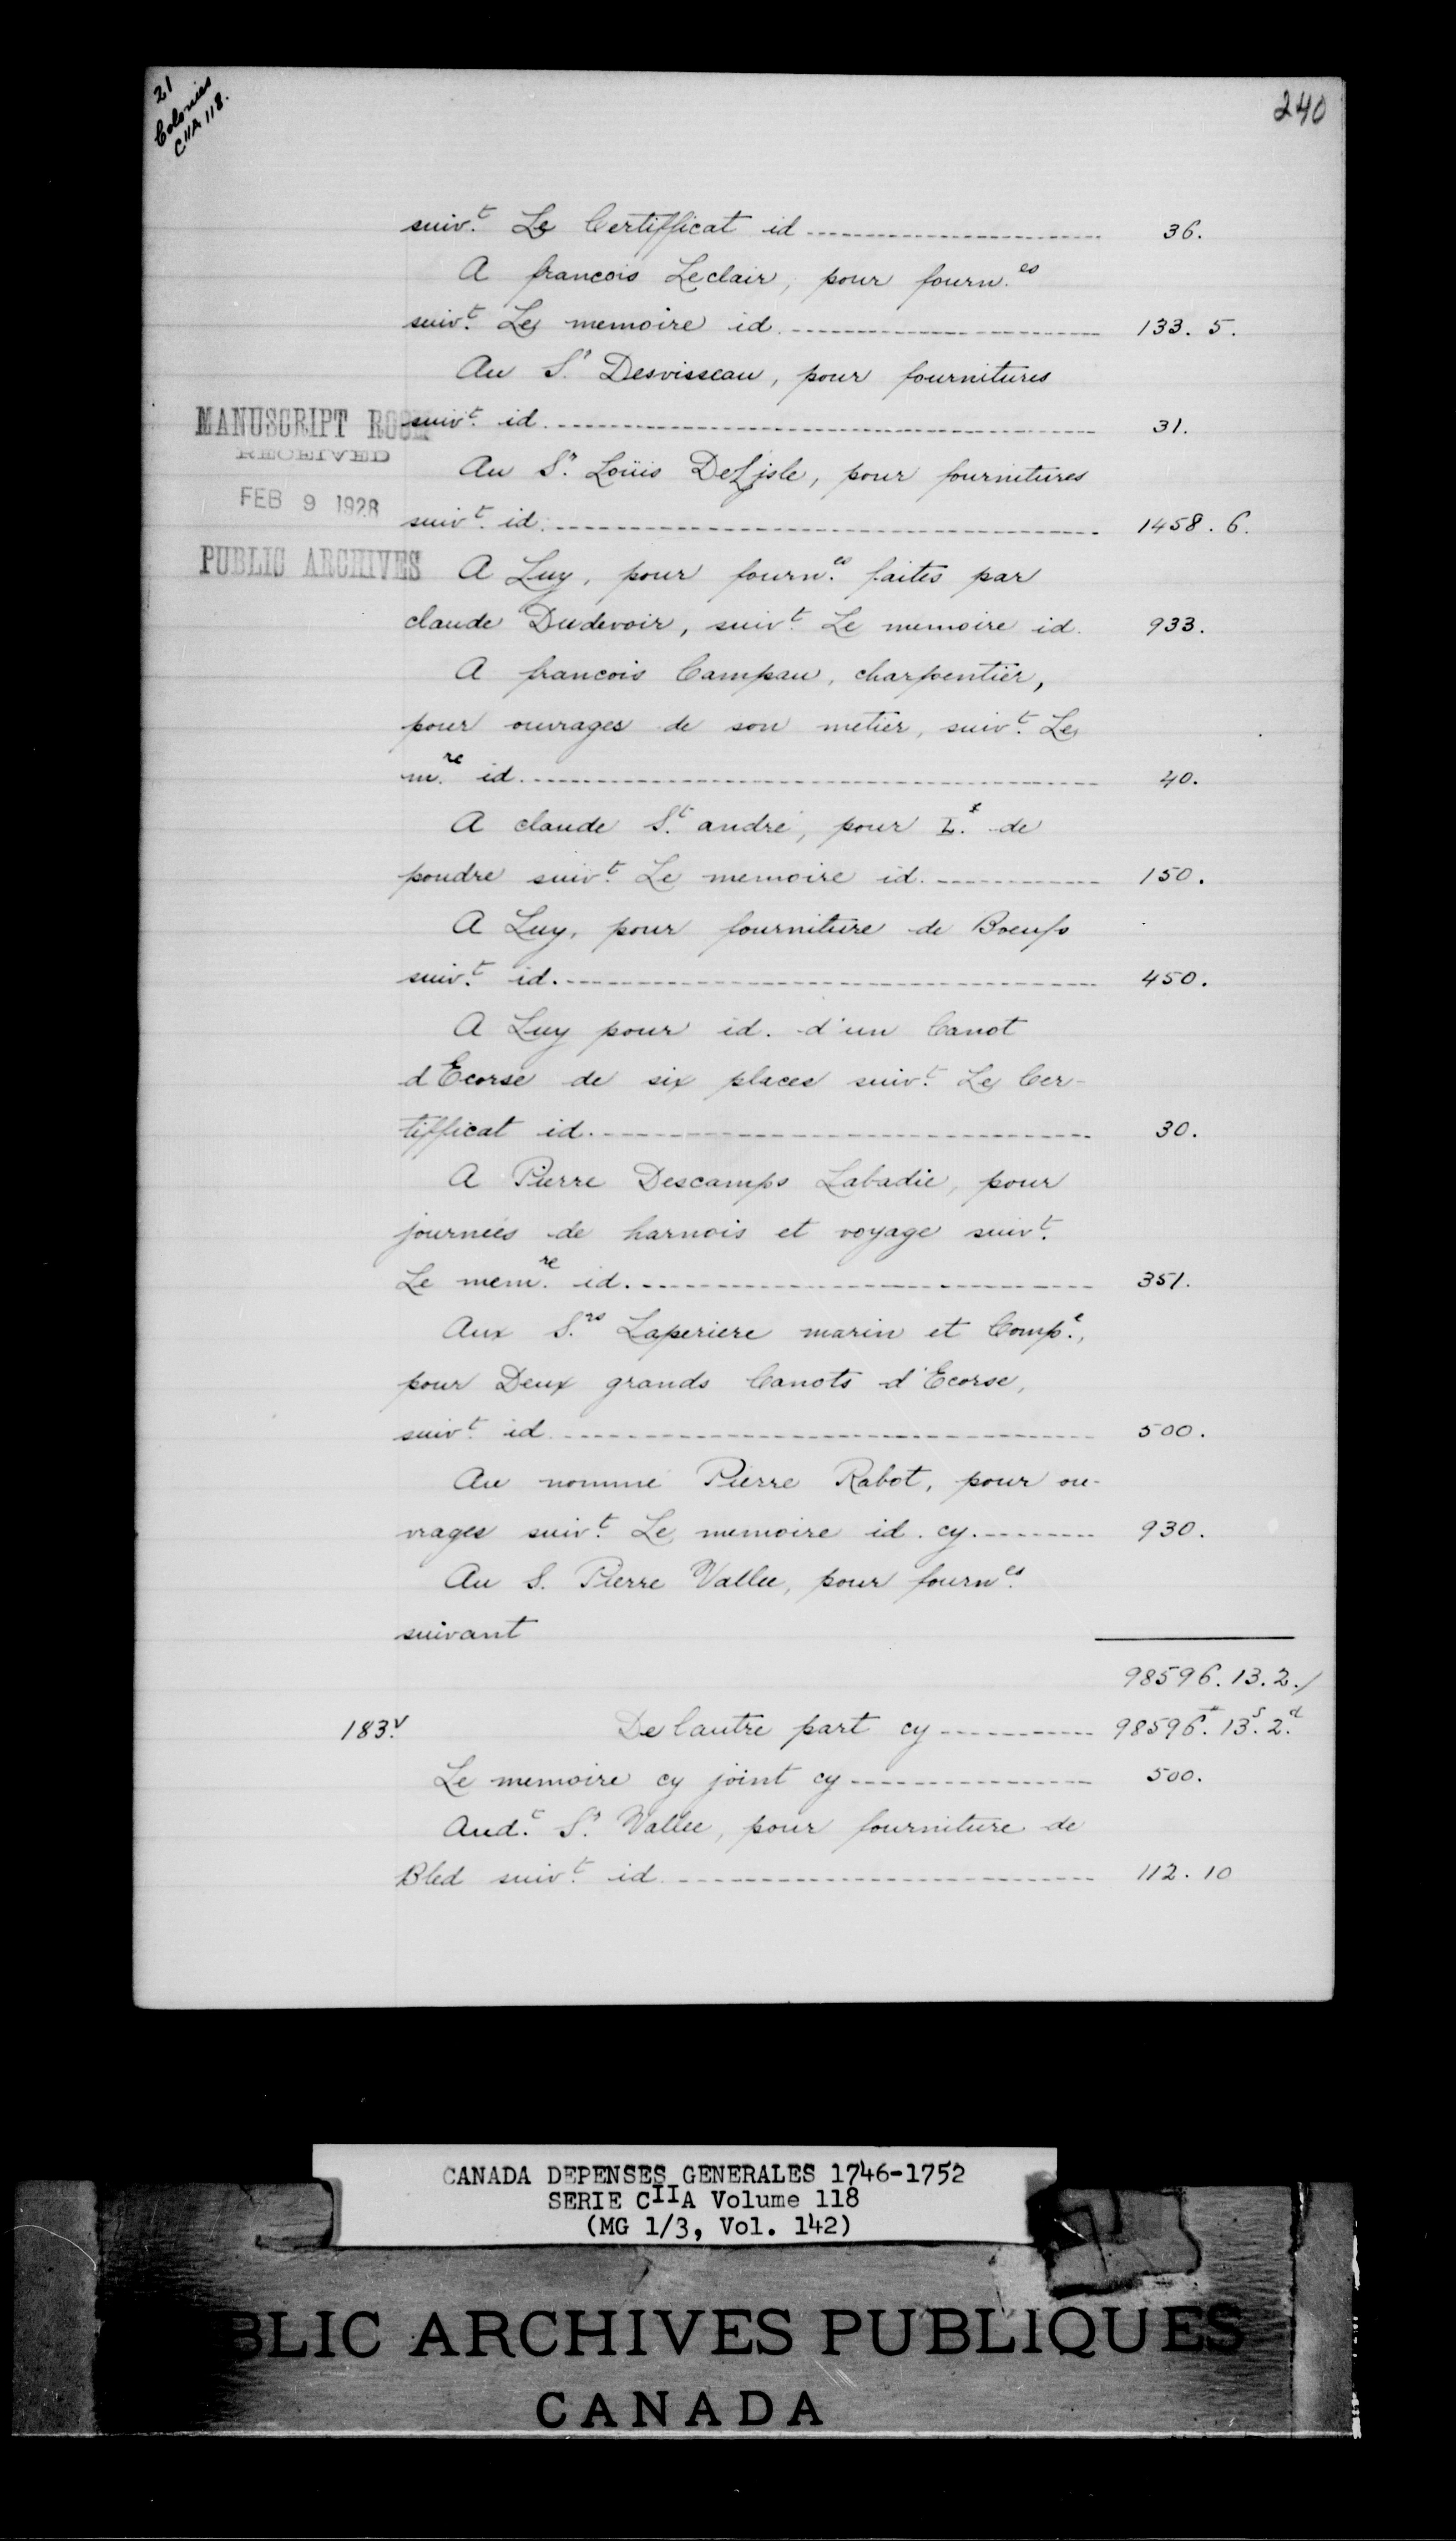 21
Colonies
C11A 118.
240
suiv.t Le Certifficat id ........ 36.
A francois Leclair, pour fourn.es
suiv.t Le memoire id ........ 133. 5.
Au S.r Desvisseau, pour fournitures
suiv.t id ........ 31.
MANUSCRIPT ROOM
RECEIVED
FEB 9 1928
PUBLIC ARCHIVES
Au S.r Loüis DeLjsle, pour fournitures
suiv.t id ........ 1458. 6.
A Luy, pour fourn.es faites par
claude Dudevoir, suiv.t Le memoire id. 933.
A francois Campau, charpentier,
pour ouvrages de son metier, suiv.t Le
m.re id ........ 40.
A claude S.t andré, pour de
poudre suiv.t Le memoire id ........ 150.
A Luy, pour fourniture de Boeufs
suiv.t id ........ 450.
A Luy pour id. d'un Canot
d'Ecorse de six places suiv.t Le Cer-
tifficat id ........ 30.
A Pierre Descamps Labadie, pour
journées de harnois et voyage suiv.t
Le mem.re id ........ 351.
Aux S.rs Laperiere marin et Comp.e,
pour Deux grands Canots d'Ecorse,
suiv.t id ........ 500.
Au nommé Pierre Rabot, pour ou-
vrages suiv.t Le memoire id. cy ........ 930.
Au S. Pierre Vallee, pour fourn.es
suivant
98596. 13. 2./
183.v De lautre part cy ........ 98596.# 13.s 2.d
Le memoire cy joint cy ........ 500.
Aud.t S.r Vallee, pour fourniture de
Bled suiv.t id ........ 112. 10
CANADA DEPENSES GENERALES 1746-1752
SERIE CIIA Volume 118
(MG 1/3, Vol. 142)
BLIC ARCHIVES PUBLIQUES
CANADA